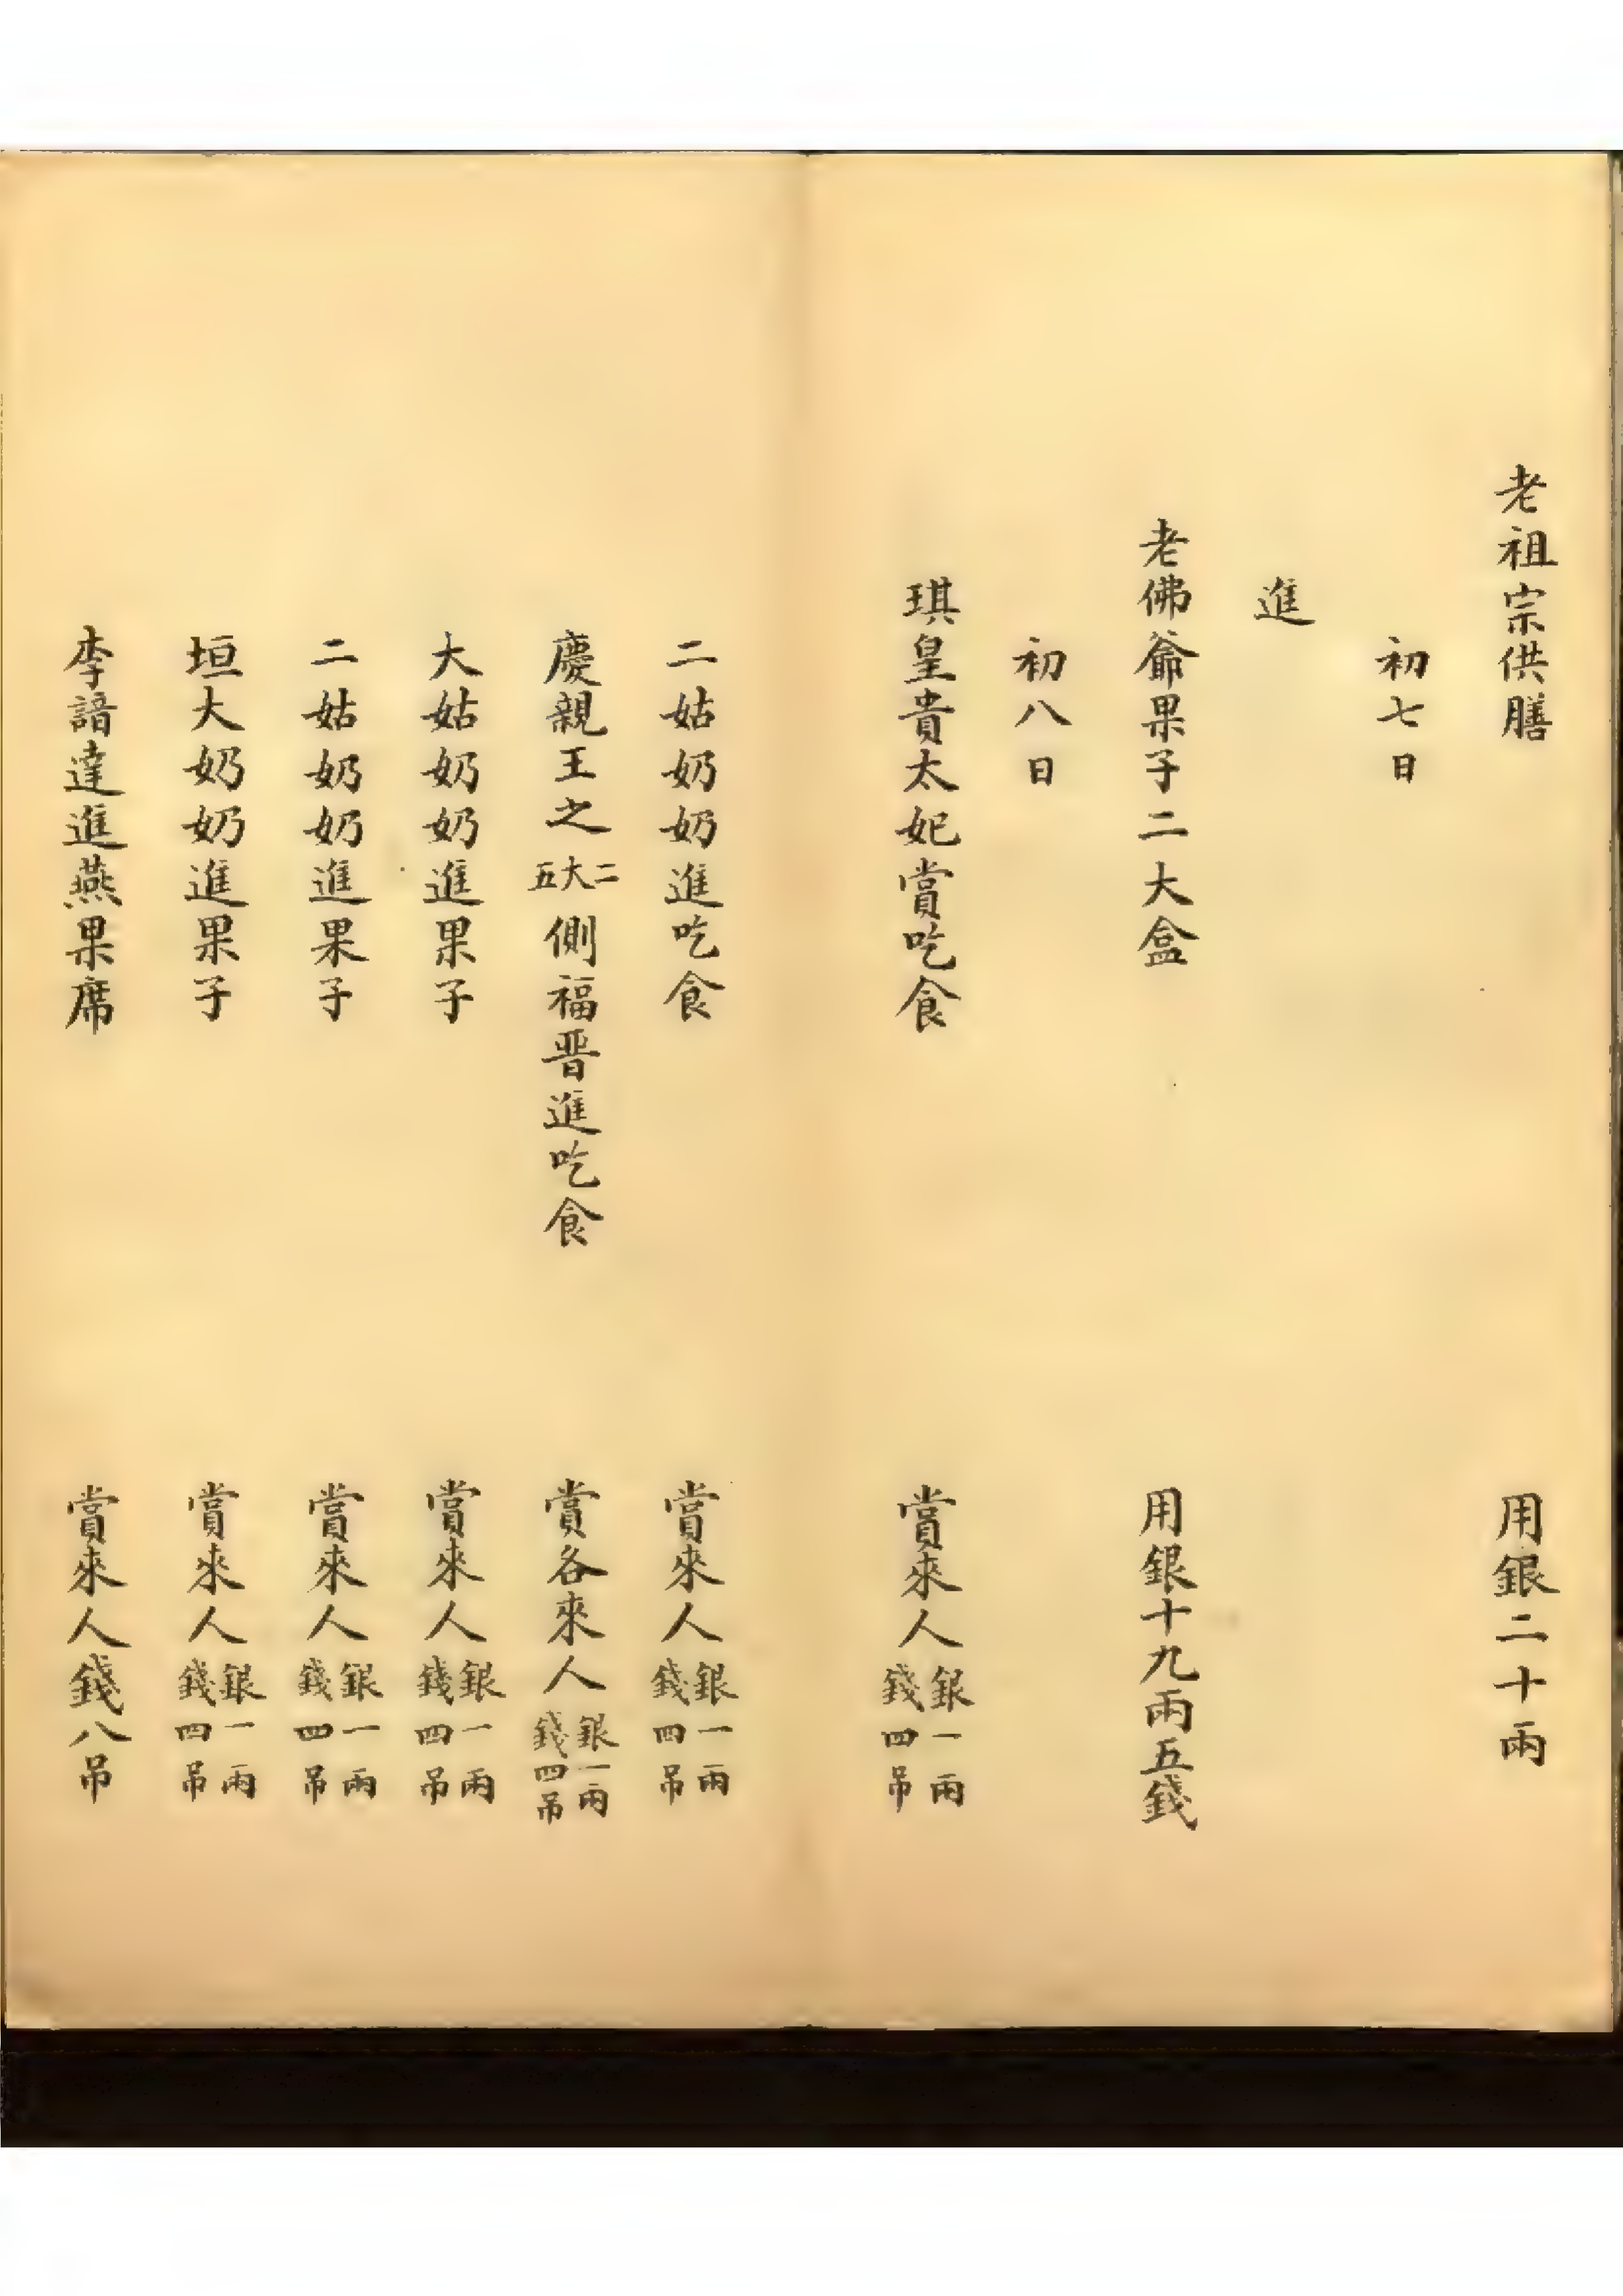 老祖宗供膳　用銀二十兩
初七日
進
老佛爺果子二大盒　用銀十九兩五錢
初八日
琪皇貴太妃賞吃食　賞來人銀一兩錢四吊
二姑奶奶進吃食　賞來人銀一兩錢四吊
慶親王之二大五側福晋進吃食　賞各來人銀一兩錢四吊
大姑奶奶進果子　賞來人銀一兩錢四吊
二姑奶奶進果子　賞來人銀一兩錢四吊
垣大奶奶進果子　賞來人銀一兩錢四吊
李諳達進燕果席　賞來人錢八吊